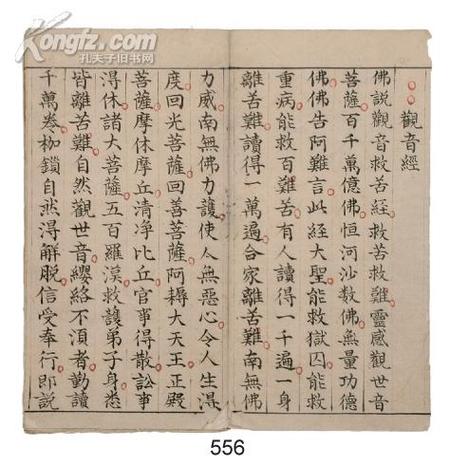 Kongfz.com
孔夫子旧书网
觀音經
佛說觀音救苦經救苦救難靈感觀世音
菩薩百千萬億佛恒河沙數佛無量功德
佛佛告阿難言此經大聖能救獄囚能救
重病能救百難苦有人讀得一千遍一身
離苦難讀得一萬遍合家離苦難南無佛
力威南無佛力護使人無惡心令人生得
度回光菩薩回善菩薩阿耨大天王正殿
菩薩摩休摩丘清净比丘官事得散訟事
得休諸大菩薩五百羅漢救護弟子身悉
皆離苦難自然觀世音纓絡不湏者勤讀
千萬卷枷鎖自然得解脫信受奉行即說
556